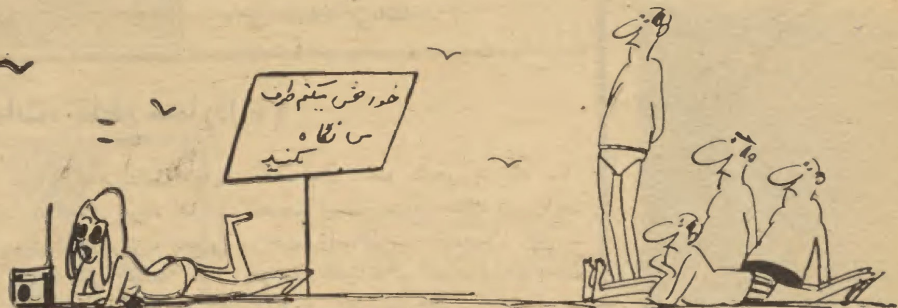 خواهش میکنم طرف
من نگاه
نکنید